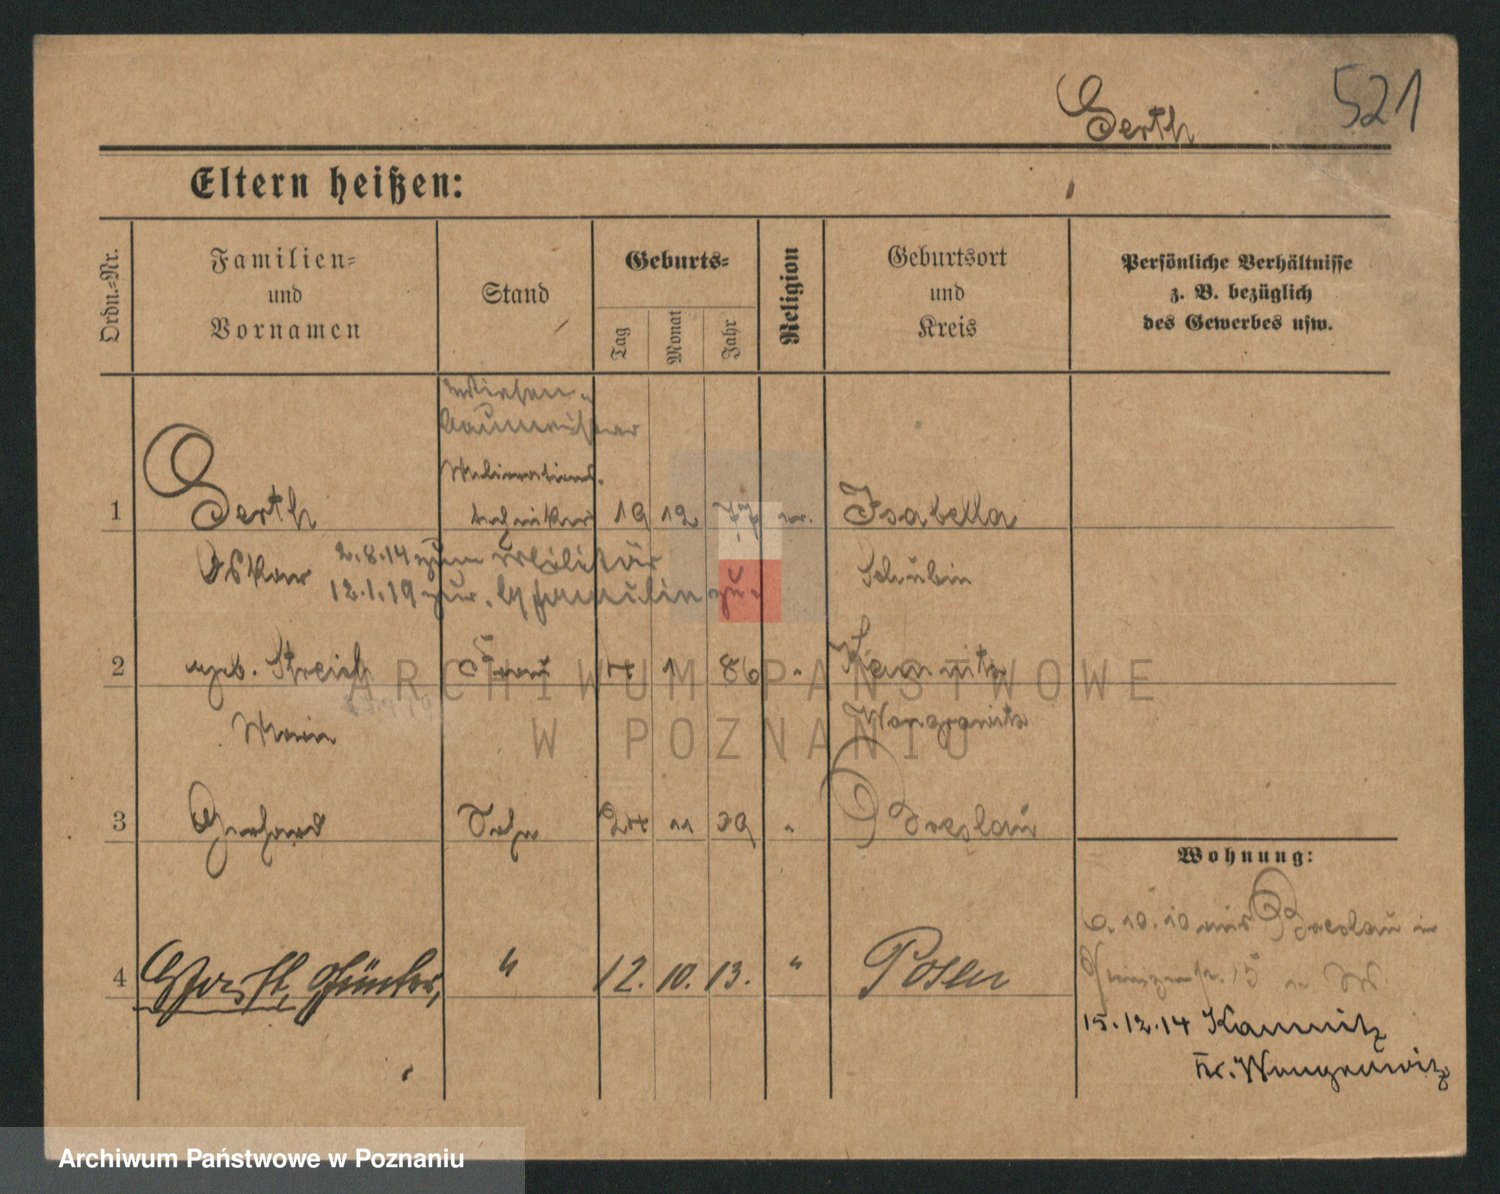 Gerth
521
Eltern heißen:
Ordn.-Nr.
Familien-
und
Vornamen
Stand
Geburts-
Tag
Monat
Jahr
Religion
Geburtsort
und
Kreis
Persönliche Verhältnisse
z. B. bezüglich
des Gewerbes usw.
Wiesen-
baumeister
Meliorations-
techniker
1 Gerth 19 12 77 ev. Isabella
Oskar 2.8.14 zum Militär Schubin
12.1.19 zur.
2 geb. Streich Frau 4 1 86 " Kamnitz
Wongrowitz
3 Gerhard Sohn 24 11 09 " Breslau
Wohnung:
6.10.10 aus Breslau in
15
4 Horst, Günter, " 12. 10. 13. " Posen
15.12.14 Kamnitz
Kr. Wongrowitz
ARCHIWUM PAŃSTWOWE
W POZNANIU
Archiwum Państwowe w Poznaniu